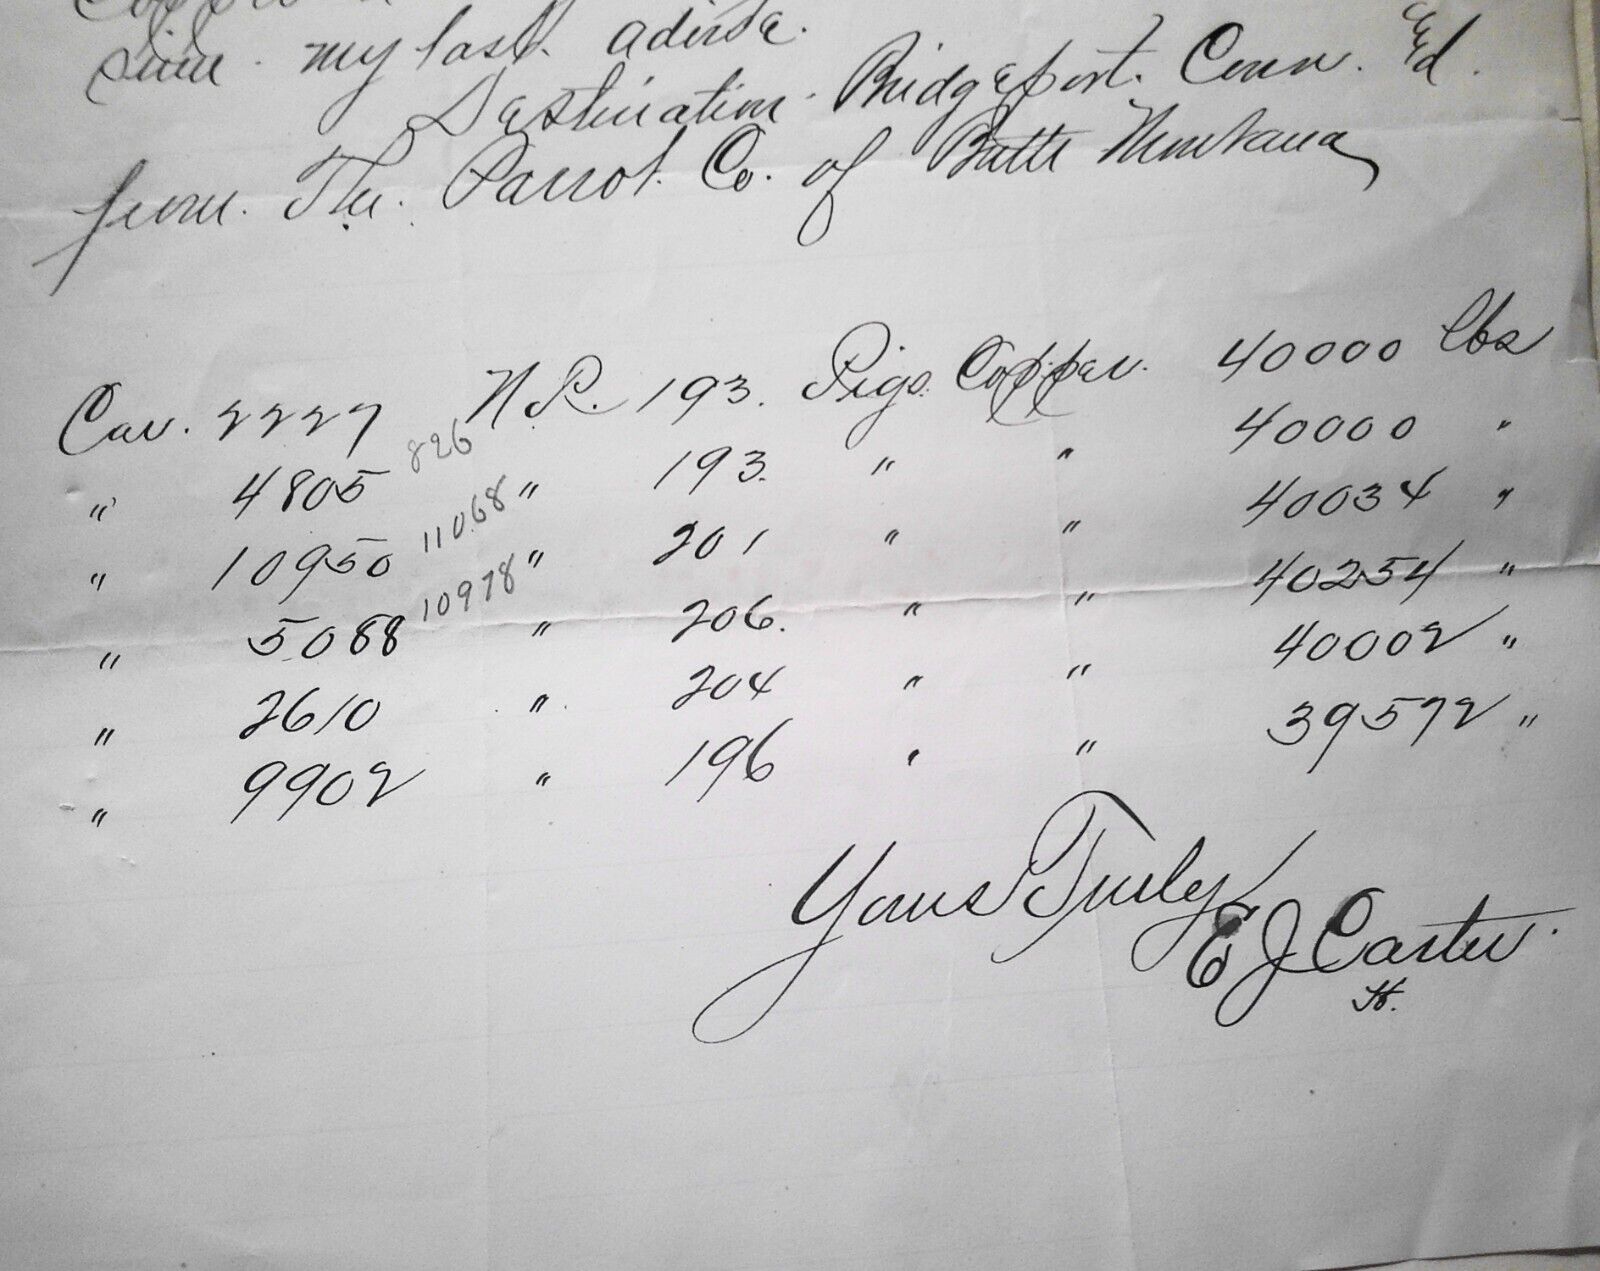 since my last advise.
Destination. Bridgeport. Conn. Eg'd.
from. The. Parrot. Co. of Butte Montana
Car. 2227 N.P. 193. Pigs. Copper. 40000 lbs
" 4805 826 " 193. " " 40000 "
" 10950 11068 " 201 " " 40034 "
" 5088 10978 " 206. " " 40254 "
" 2610 " 204 " " 40002 "
" 9902 " 196 " " 39572 "
Yours Truly
E J Carter.
H.